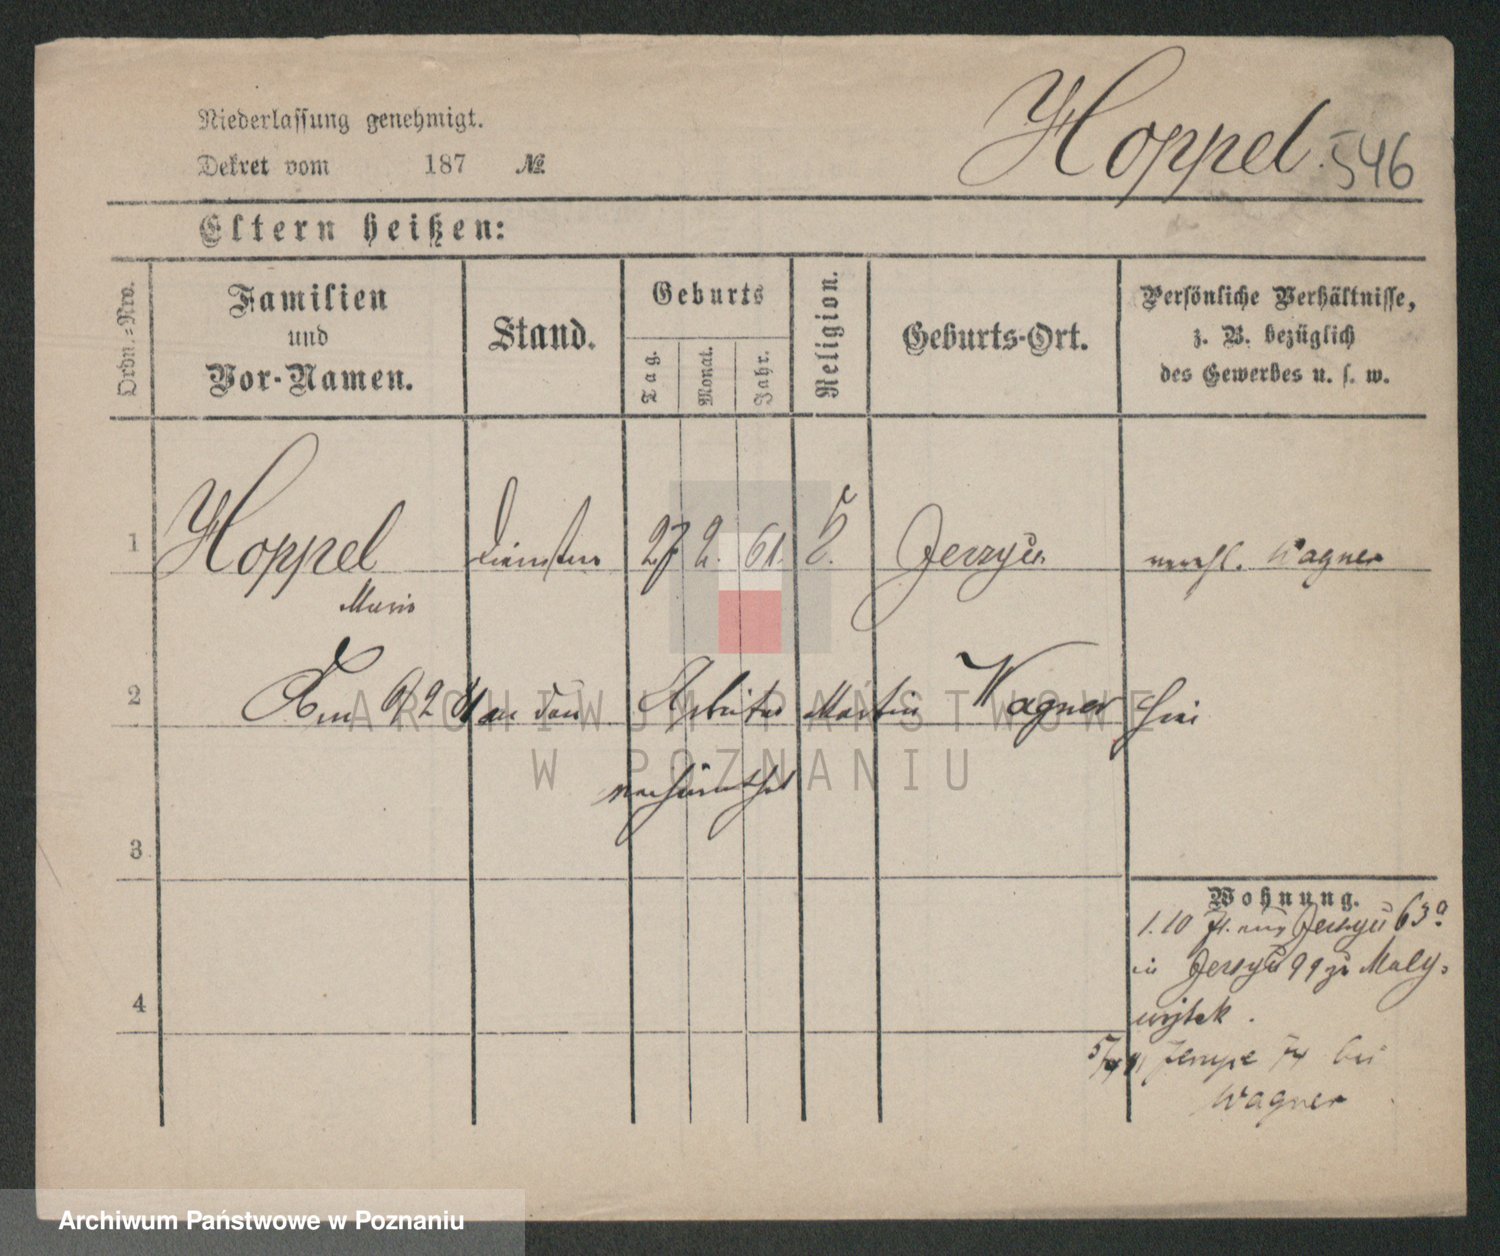 Niederlassung genehmigt.
Dekret vom 187 №
Hoppel. 546
Eltern heißen:
Ordn.-Nro.
Familien
und
Vor-Namen.
Stand.
Geburts
Tag.
Monat.
Jahr.
Religion.
Geburts-Ort.
Persönliche Verhältnisse,
z. B. bezüglich
des Gewerbes u. s. w.
1 Hoppel 27 2. 61. Jerzyce verehl. Wagner
Marie
2 Am 9 2 an den Arbeiter Martin Wagner hier
verheirathet
3
4
Wohnung.
1.10 aus Jerzyce 63a
in Jerzyce 99 zu Maly-
wojtek.
bei
Wagner
ARCHIWUM PAŃSTWOWE
W POZNANIU
Archiwum Państwowe w Poznaniu